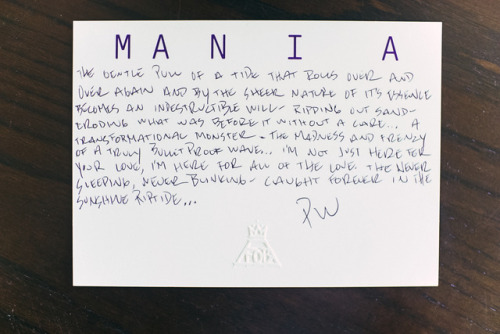 M A N I A
THE GENTLE PULL OF A TIDE THAT ROLLS OVER AND
OVER AGAIN AND BY THE SHEER NATURE OF ITS ESSENCE
BECOMES AN INDESTRUCTIBLE WILL- RIPPING OUT SAND-
ERODING WHAT WAS BEFORE IT WITHOUT A CARE... A
TRANSFORMATIONAL MONSTER- THE MADNESS AND FRENZY
OF A TRULY BULLETPROOF WAVE... I'M NOT JUST HERE FOR
YOUR LOVE, I'M HERE FOR ALL OF THE LOVE. THE NEVER
SLEEPING, NEVER-BLINKING- CAUGHT FOREVER IN THE
SUNSHINE RIPTIDE...
PW
FOB